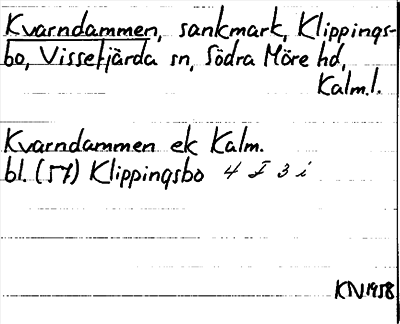 Kvarndammen, sankmark, Klippings-
bo, Vissefjärda sn, Södra Möre hd,
Kalm.l.
Kvarndammen ek Kalm.
bl. (57) Klippingsbo 4 I 3 i
KN1958